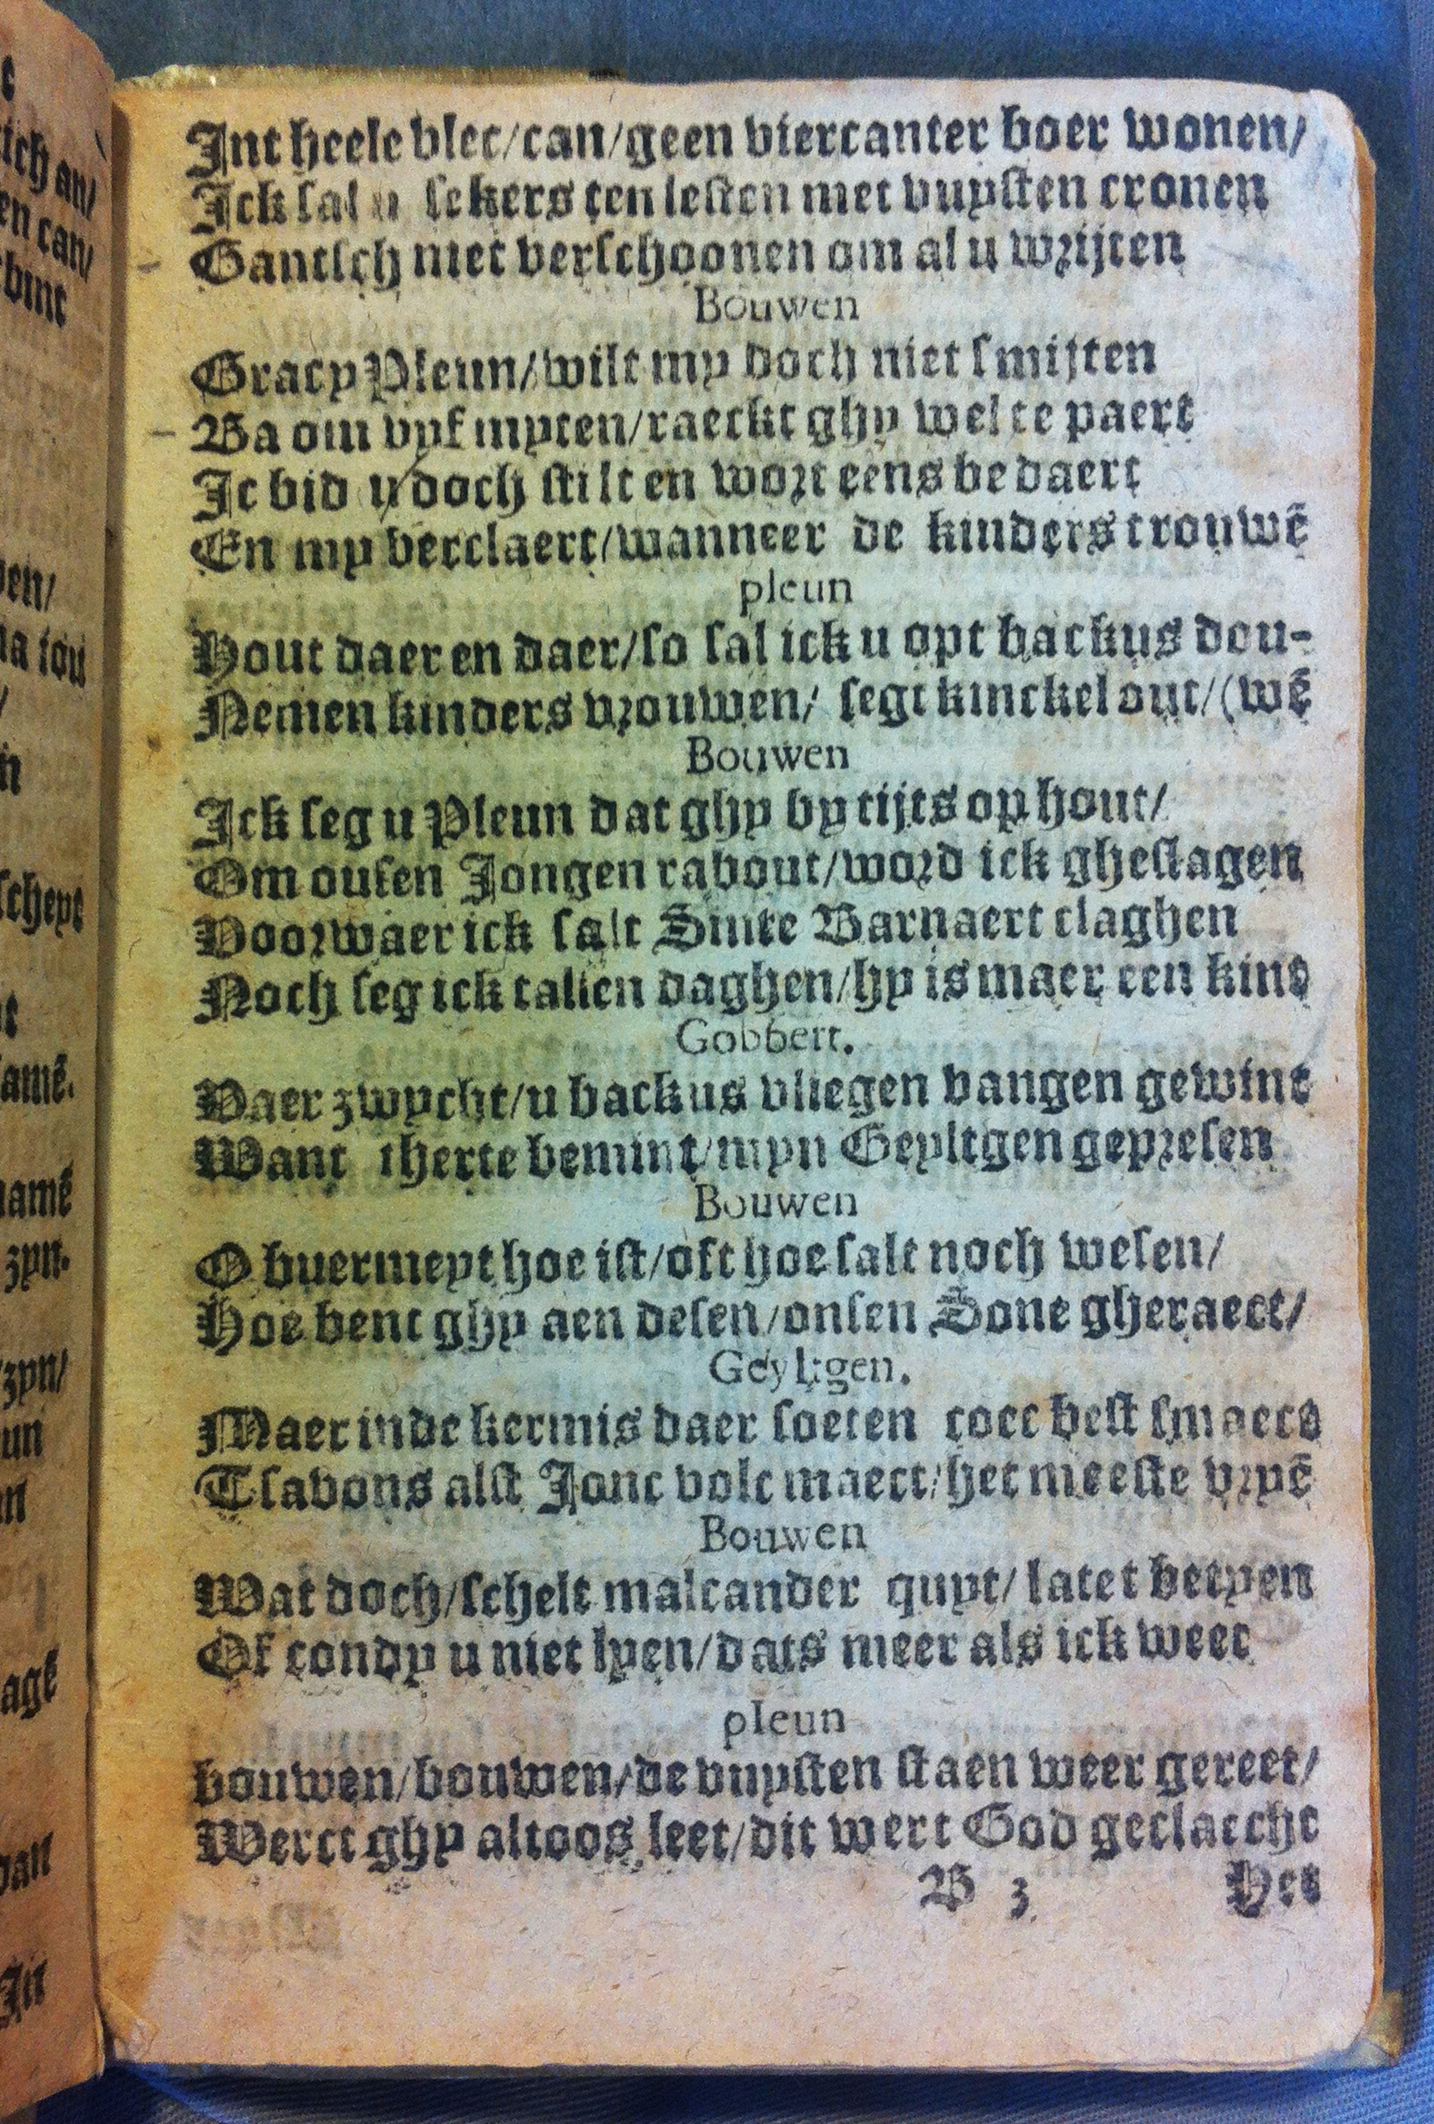 Int heele vlec/can/geen viercanter boer wonen/
Ick sal u sekers ten lesten met vuysten cronen
Gantsch niet verschoonen om al u wrijten
Bouwen
Gracy Pleun/wilt my doch niet smijten
Ba om vyf myten/raeckt ghy wel te paert
Ic bid u doch stilt en wort eens bedaert
En my verclaert/wanneer de kinders trouwē
pleun
Hout daer en daer/so sal ick u opt backus dou-
Nemen kinders vrouwen/ segt kinckel out/(wē
Bouwen
Ick seg u Pleun dat ghy by tijts op hout/
Om ousen Jongen rabout/word ick gheslagen
Voorwaer ick salt Sinte Barnaert claghen
Noch seg ick tallen daghen/hy is maer een kind
Gobbert.
Daer zwycht/u backus vliegen vangen gewint
Want therte bemint/myn Geyltgen gepresen
Bouwen
O buermeyt hoe ist/oft hoe salt noch wesen/
Hoe bent ghy aen desen/onsen Sone gheraect/
Geyltgen.
Maer inde kermis daer soeten coec best smaect
Tsavons alst Jonc volc maect/het meeste vryē
Bouwen
Wat doch/schelt malcander quyt/latet betyen
Of condy u niet lyen/dats meer als ick weet
pleun
bouwen/bouwen/de vuysten staen weer gereet/
Werct ghy altoos leet/dit wert God geclaecht
B 3 Het